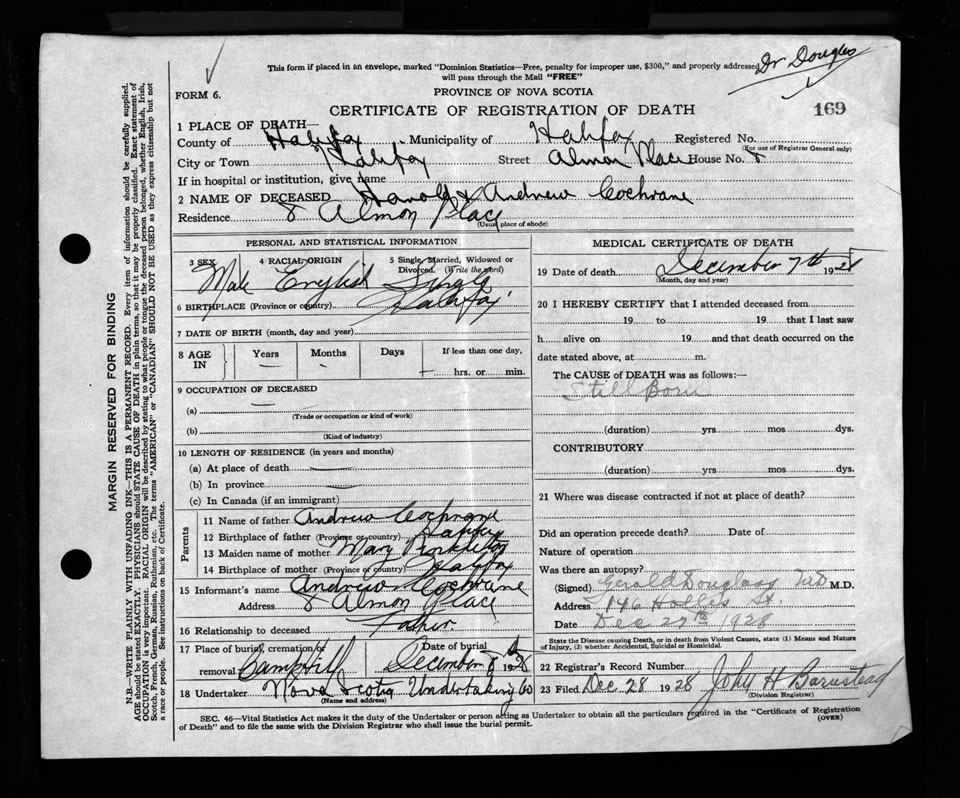 Dr Douglas
This form if placed in an envelope, marked "Dominion Statistics—Free, penalty for improper use, $300," and properly addressed
will pass through the Mail "FREE"
FORM 6.
PROVINCE OF NOVA SCOTIA
CERTIFICATE OF REGISTRATION OF DEATH
169
1 PLACE OF DEATH—
County of Halifax Municipality of Halifax Registered No.
(For use of Registrar General only)
City or Town Halifax Street Almon Place House No. 8
If in hospital or institution, give name
2 NAME OF DECEASED Harold Andrew Cochrane
Residence 8 Almon Place
(Usual place of abode)
PERSONAL AND STATISTICAL INFORMATION
3 SEX 4 RACIAL ORIGIN 5 Single, Married, Widowed or
Divorced. (Write the word)
Male English Single
6 BIRTHPLACE (Province or country) Halifax
7 DATE OF BIRTH (month, day and year)
8 AGE IN Years Months Days If less than one day,
hrs. or min.
9 OCCUPATION OF DECEASED
(a) —
(Trade or occupation or kind of work)
(b)
(Kind of industry)
10 LENGTH OF RESIDENCE (in years and months)
(a) At place of death
(b) In province
(c) In Canada (if an immigrant)
Parents
11 Name of father Andrew Cochrane
12 Birthplace of father (Province or country)
13 Maiden name of mother Mary
14 Birthplace of mother (Province or country) Halifax
15 Informant's name Andrew Cochrane
Address 8 Almon Place
16 Relationship to deceased Father
17 Place of burial, cremation or Date of burial
removal Camp Hill December 8th 1928
18 Undertaker Nova Scotia Undertaking Co
(Name and address)
MEDICAL CERTIFICATE OF DEATH
19 Date of death December 7th 1928
(Month, day and year)
20 I HEREBY CERTIFY that I attended deceased from
19 to 19 that I last saw
h alive on 19 and that death occurred on the
date stated above, at m.
The CAUSE OF DEATH was as follows:—
Still Born
(duration) yrs. mos. dys.
CONTRIBUTORY
(duration) yrs. mos. dys.
21 Where was disease contracted if not at place of death?
Did an operation precede death? Date of
Nature of operation
Was there an autopsy?
(Signed) Gerald Douglass M.D. M.D.
Address 146 Hollis St
Date Dec 27th 1928
State the Disease causing Death, or in death from Violent Causes, state (1) Means and Nature
of Injury, (2) whether Accidental, Suicidal or Homicidal.
22 Registrar's Record Number
23 Filed Dec 28 1928 John H Barnstead
(Division Registrar)
SEC. 46—Vital Statistics Act makes it the duty of the Undertaker or person acting as Undertaker to obtain all the particulars required in the "Certificate of Registration
of Death" and to file the same with the Division Registrar who shall issue the burial permit.
(OVER)
MARGIN RESERVED FOR BINDING
N.B.—WRITE PLAINLY WITH UNFADING INK—THIS IS A PERMANENT RECORD. Every item of information should be carefully supplied.
AGE should be stated EXACTLY. PHYSICIANS should STATE CAUSE OF DEATH in plain terms, so that it may be properly classified. Exact statement of
OCCUPATION is very important. RACIAL ORIGIN will be described by stating to what people or tongue the deceased person belonged, whether English, Irish,
Scotch, French, German, Russian, Ruthenian, etc. The terms "AMERICAN" or "CANADIAN" SHOULD NOT BE USED as they express citizenship but not
a race or people. See instructions on back of Certificate.